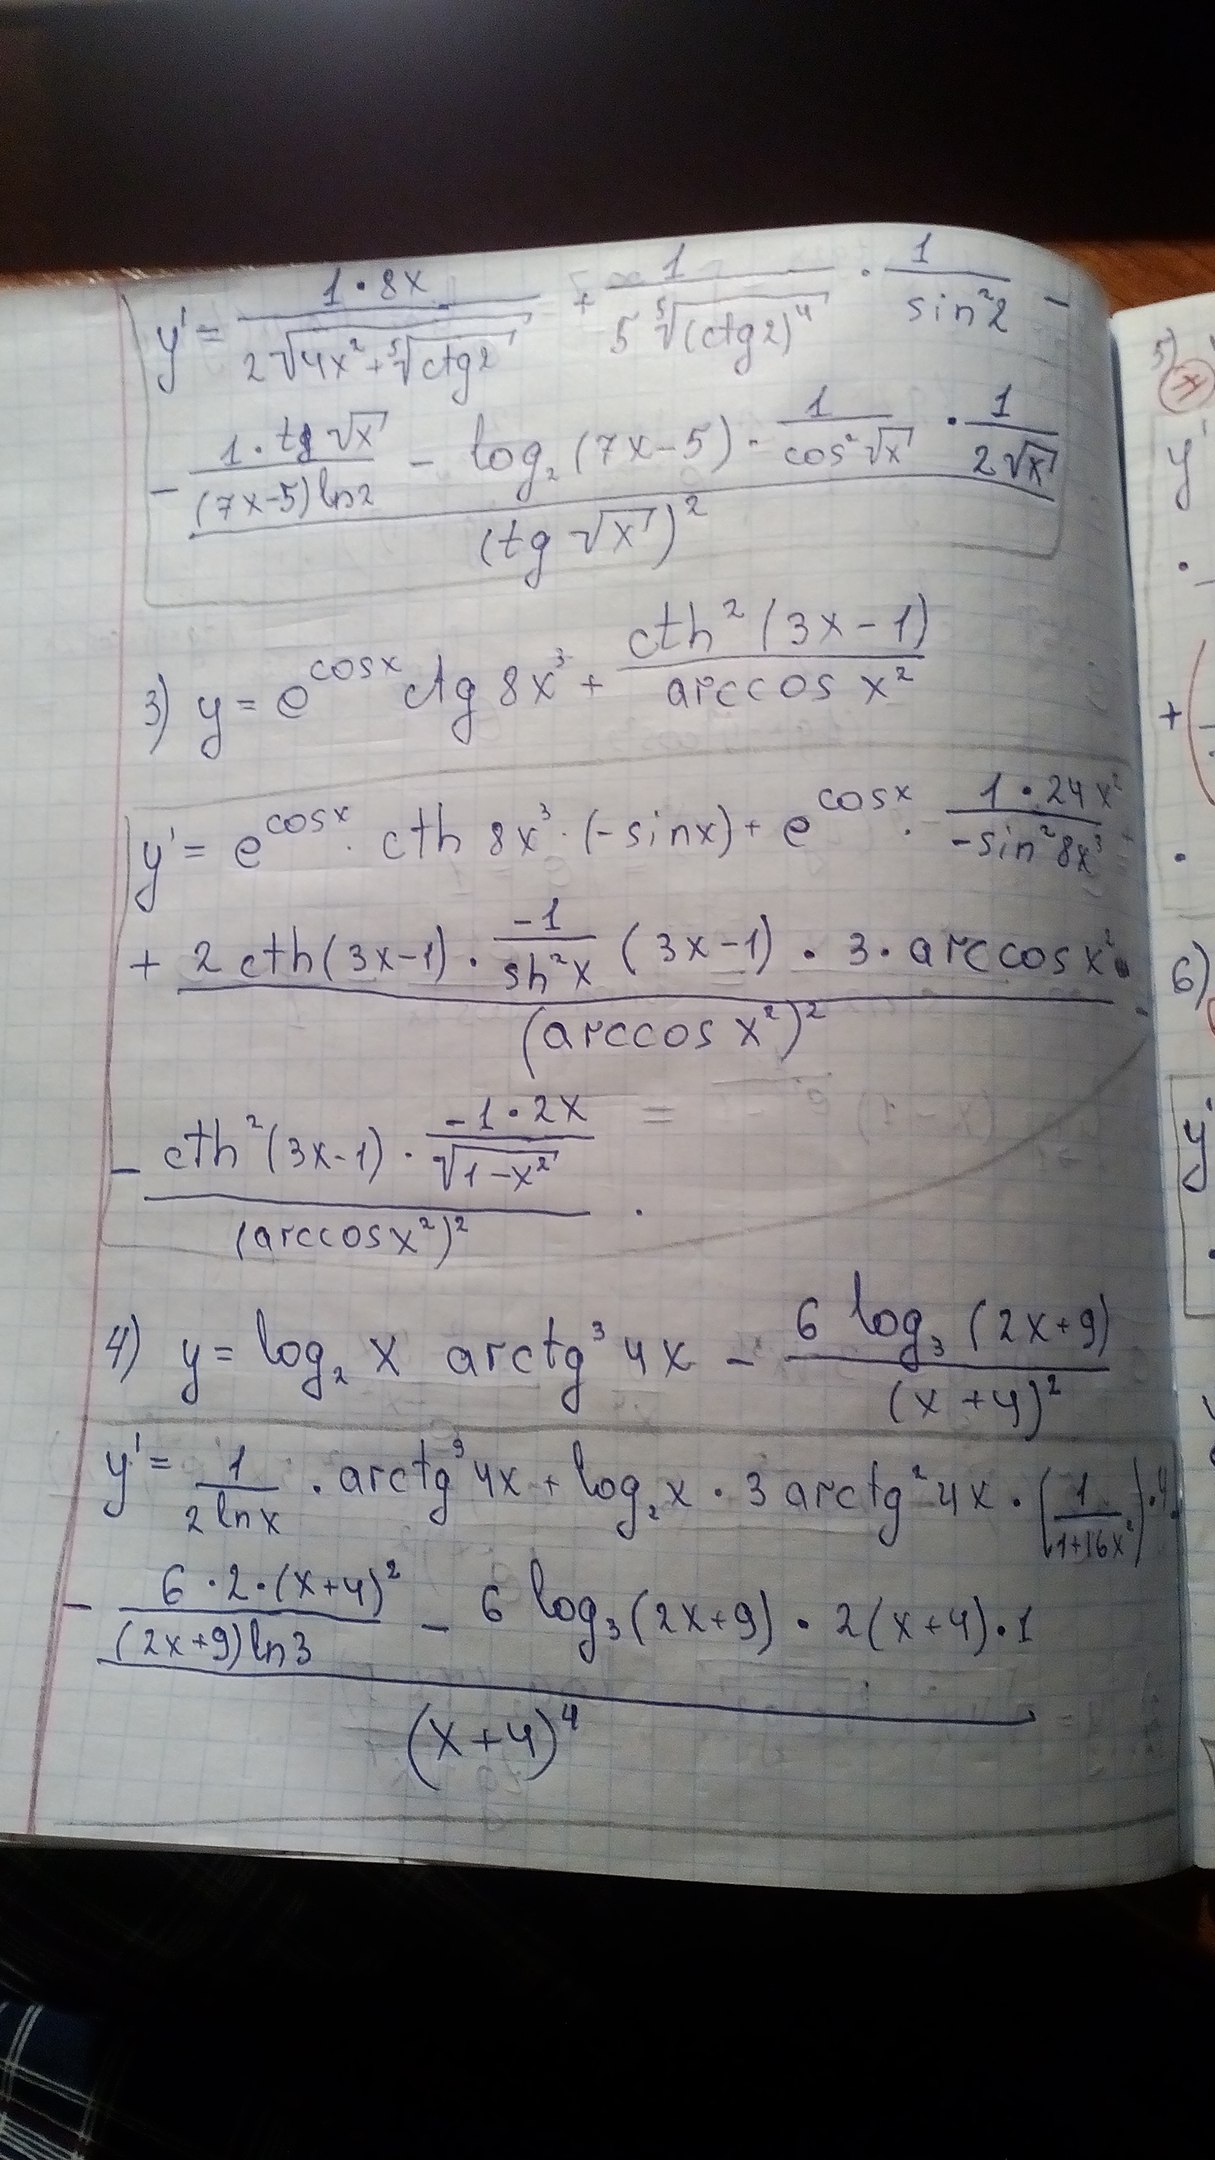 y' = 1·8x / 2√(4x²+⁵√ctg2) + 1 / 5 ⁵√(ctg2)⁴ · 1 / sin²2 −
− (1·tg√x / (7x−5)ln2 − log₂(7x−5)· 1 / cos²√x · 1 / 2√x) / (tg√x)²
3) y = e^cosx ctg 8x³ + cth²(3x−1) / arccos x²
y' = e^cosx · cth 8x³·(−sinx) + e^cosx · 1·24x² / −sin²8x³
+ 2cth(3x−1)· −1 / sh²x (3x−1) · 3 · arccosx² / (arccos x²)²
− cth²(3x−1) · (−1·2x / √(1−x²)) / (arccosx²)² .
4) y = log₂ x arctg³ 4x − 6 log₃ (2x+9) / (x+4)²
y' = 1 / 2lnx · arctg³4x + log₂x · 3arctg²4x · (1 / 1+16x²)·4
− (6·2·(x+4)² / (2x+9)ln3 − 6 log₃(2x+9) · 2(x+4)·1) / (x+4)⁴
5)
y'
+
6)
y'